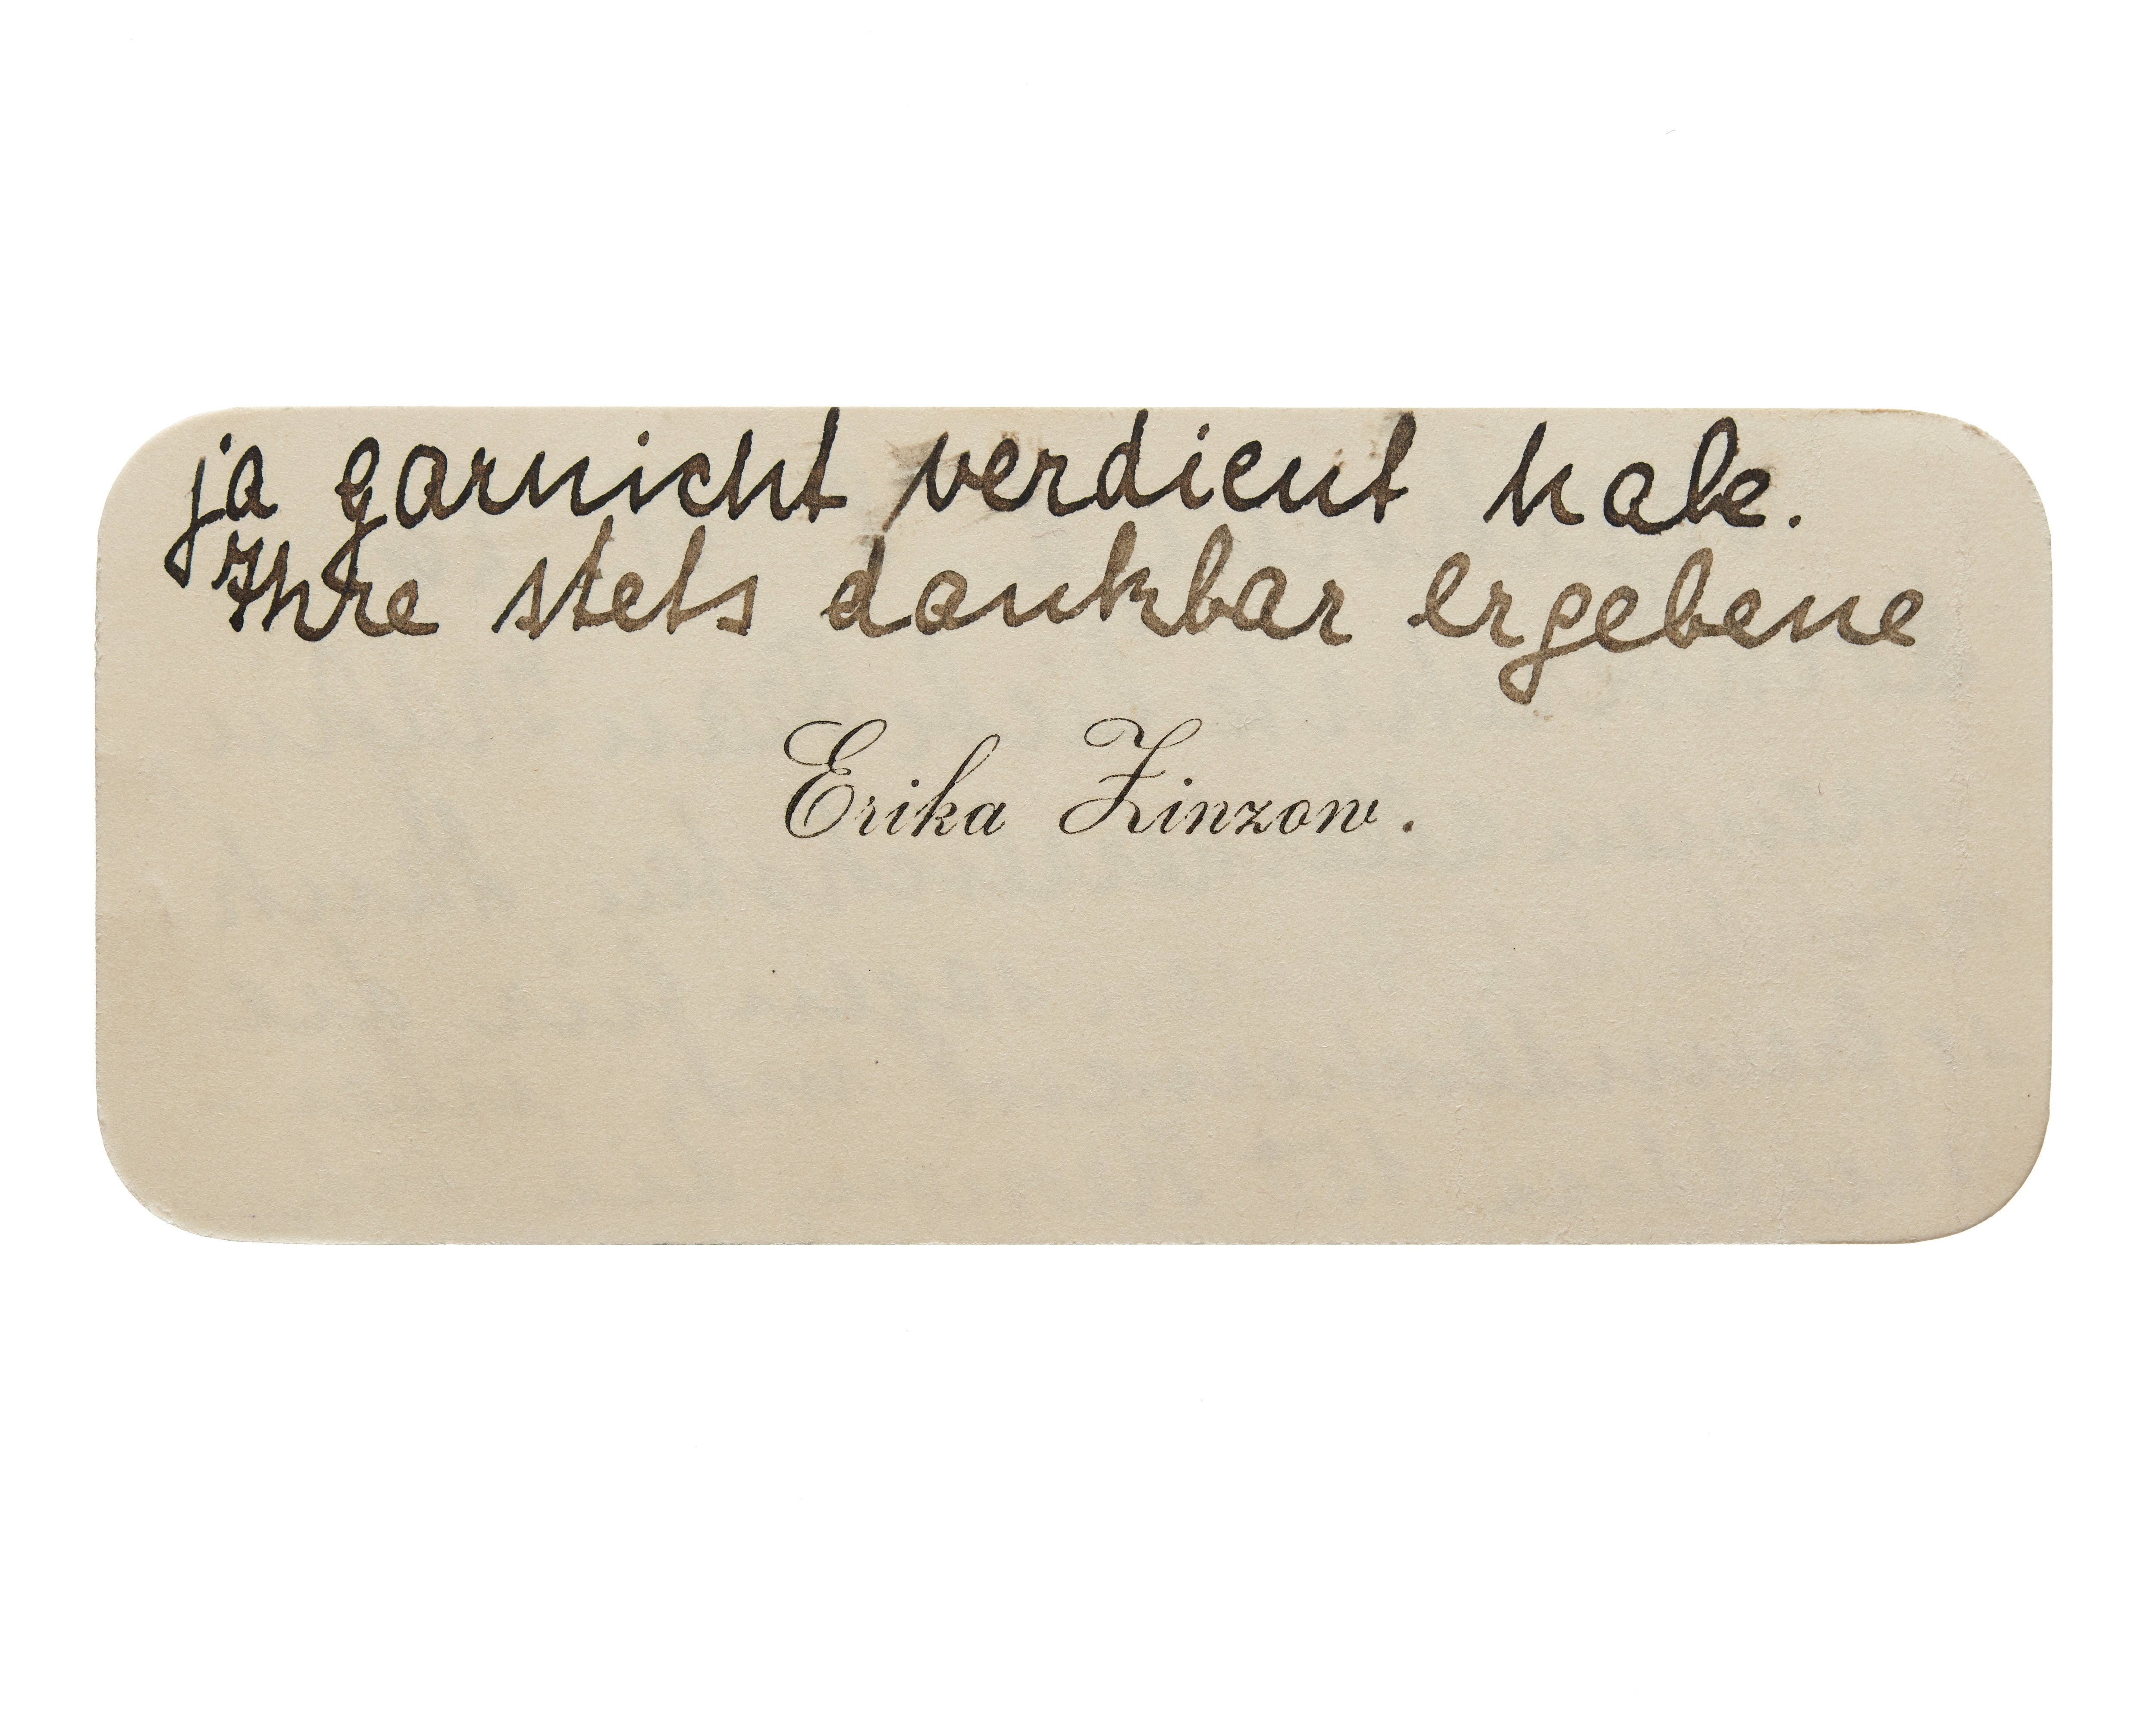 ja garnicht verdient habe.
Ihre stets dankbar ergebene
Erika Zinzow.